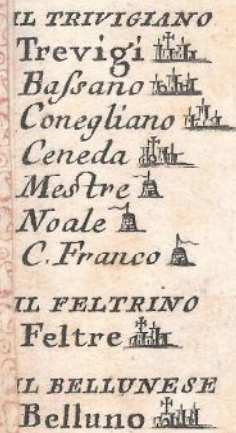 IL TRIVIGIANO
Trevigi
Baſsano
Conegliano
Ceneda
Mestre
Noale
C. Franco
IL FELTRINO
Feltre
IL BELLUNESE
Belluno